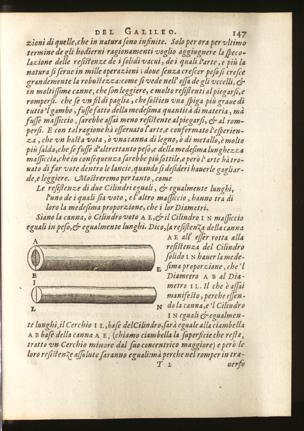 DEL GALILEO. 147
zioni di quelle, che in natura sono infinite. Solo per ora per vltimo
termine de gli hodierni ragionamenti voglio aggiugnere la specu-
lazione delle resistenze de i solidi vacui, de i quali l'arte, e più la
natura si serue in mille operazioni: doue senza crescer peso si cresce
grandemente la robustezza: come si vede nell'ossa de gli vccelli, &
in moltissime canne, che son leggiere, e molto resistenti al piegarsi, e
rompersi. che se vn fil di paglia, che sostien vna spiga più graue di
tutto'l gambo, fusse fatto della medesima quantità di materia, mà
fusse massiccio, sarebbe assai meno resistente al piegarsi, & al rom-
persi. E con tal ragione hà osseruato l'arte, e confermato l'esperien-
za, che vn hasta vota, ò vna canna di legno, ò di metallo, è molto
più salda, che se fusse d'altrettanto peso, e della medesima lunghezza
massiccia, che in consequenza sarebbe più sottile, e però l'arte hà tro-
uato di far vote dentro le lancie, quando si desideri hauerle gagliar-
de, e leggiere. Mostreremo per tanto, come
Le resistenze di due Cilindri eguali, & egualmente lunghi,
l'vno de i quali sia voto, e l'altro massiccio, hanno tra di
loro la medesima proporzione, che i lor Diametri.
Siano la canna, ò Cilindro voto AE, & il Cilindro IN massiccio
eguali in peso, & egualmente lunghi. Dico, la resistenza della canna
AE all'esser rotta alla
resistenza del Cilindro
solido IN hauer la mede-
sima proporzione, che'l
Diametro AB al Dia-
metro IL. Il che è assai
manifesto, perche essen-
do la canna, e'l Cilindro
IN eguali & egualmen-
A
B
E
I
L
N
te lunghi, il Cerchio IL, base del Cilindro, sarà eguale alla ciambella
AB base della canna AE, (chiamo ciambella la superficie che resta,
tratto vn Cerchio minore dal suo concentrico maggiore) e però le
loro resistenze assolute saranno eguali: mà perche nel romper in tra-
T 2 uerso